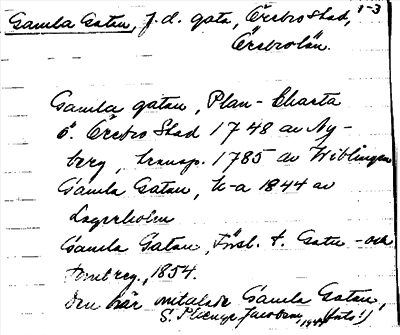 Gamla Gatan, f. d. gata, Örebro Stad, 1-3
Örebro län.
Gamla gatan, Plan-Charta
ö. Örebro Stad 1748 av Ny-
berg, transp. 1785 av Wiblingen
Gamla Gatan, k-a 1844 av
Lagerholm
Gamla Gatan, Försl. t. Gatu- och
Tomtreg., 1854.
Den här omtalade Gamla Gatan,
S. Jacobson,